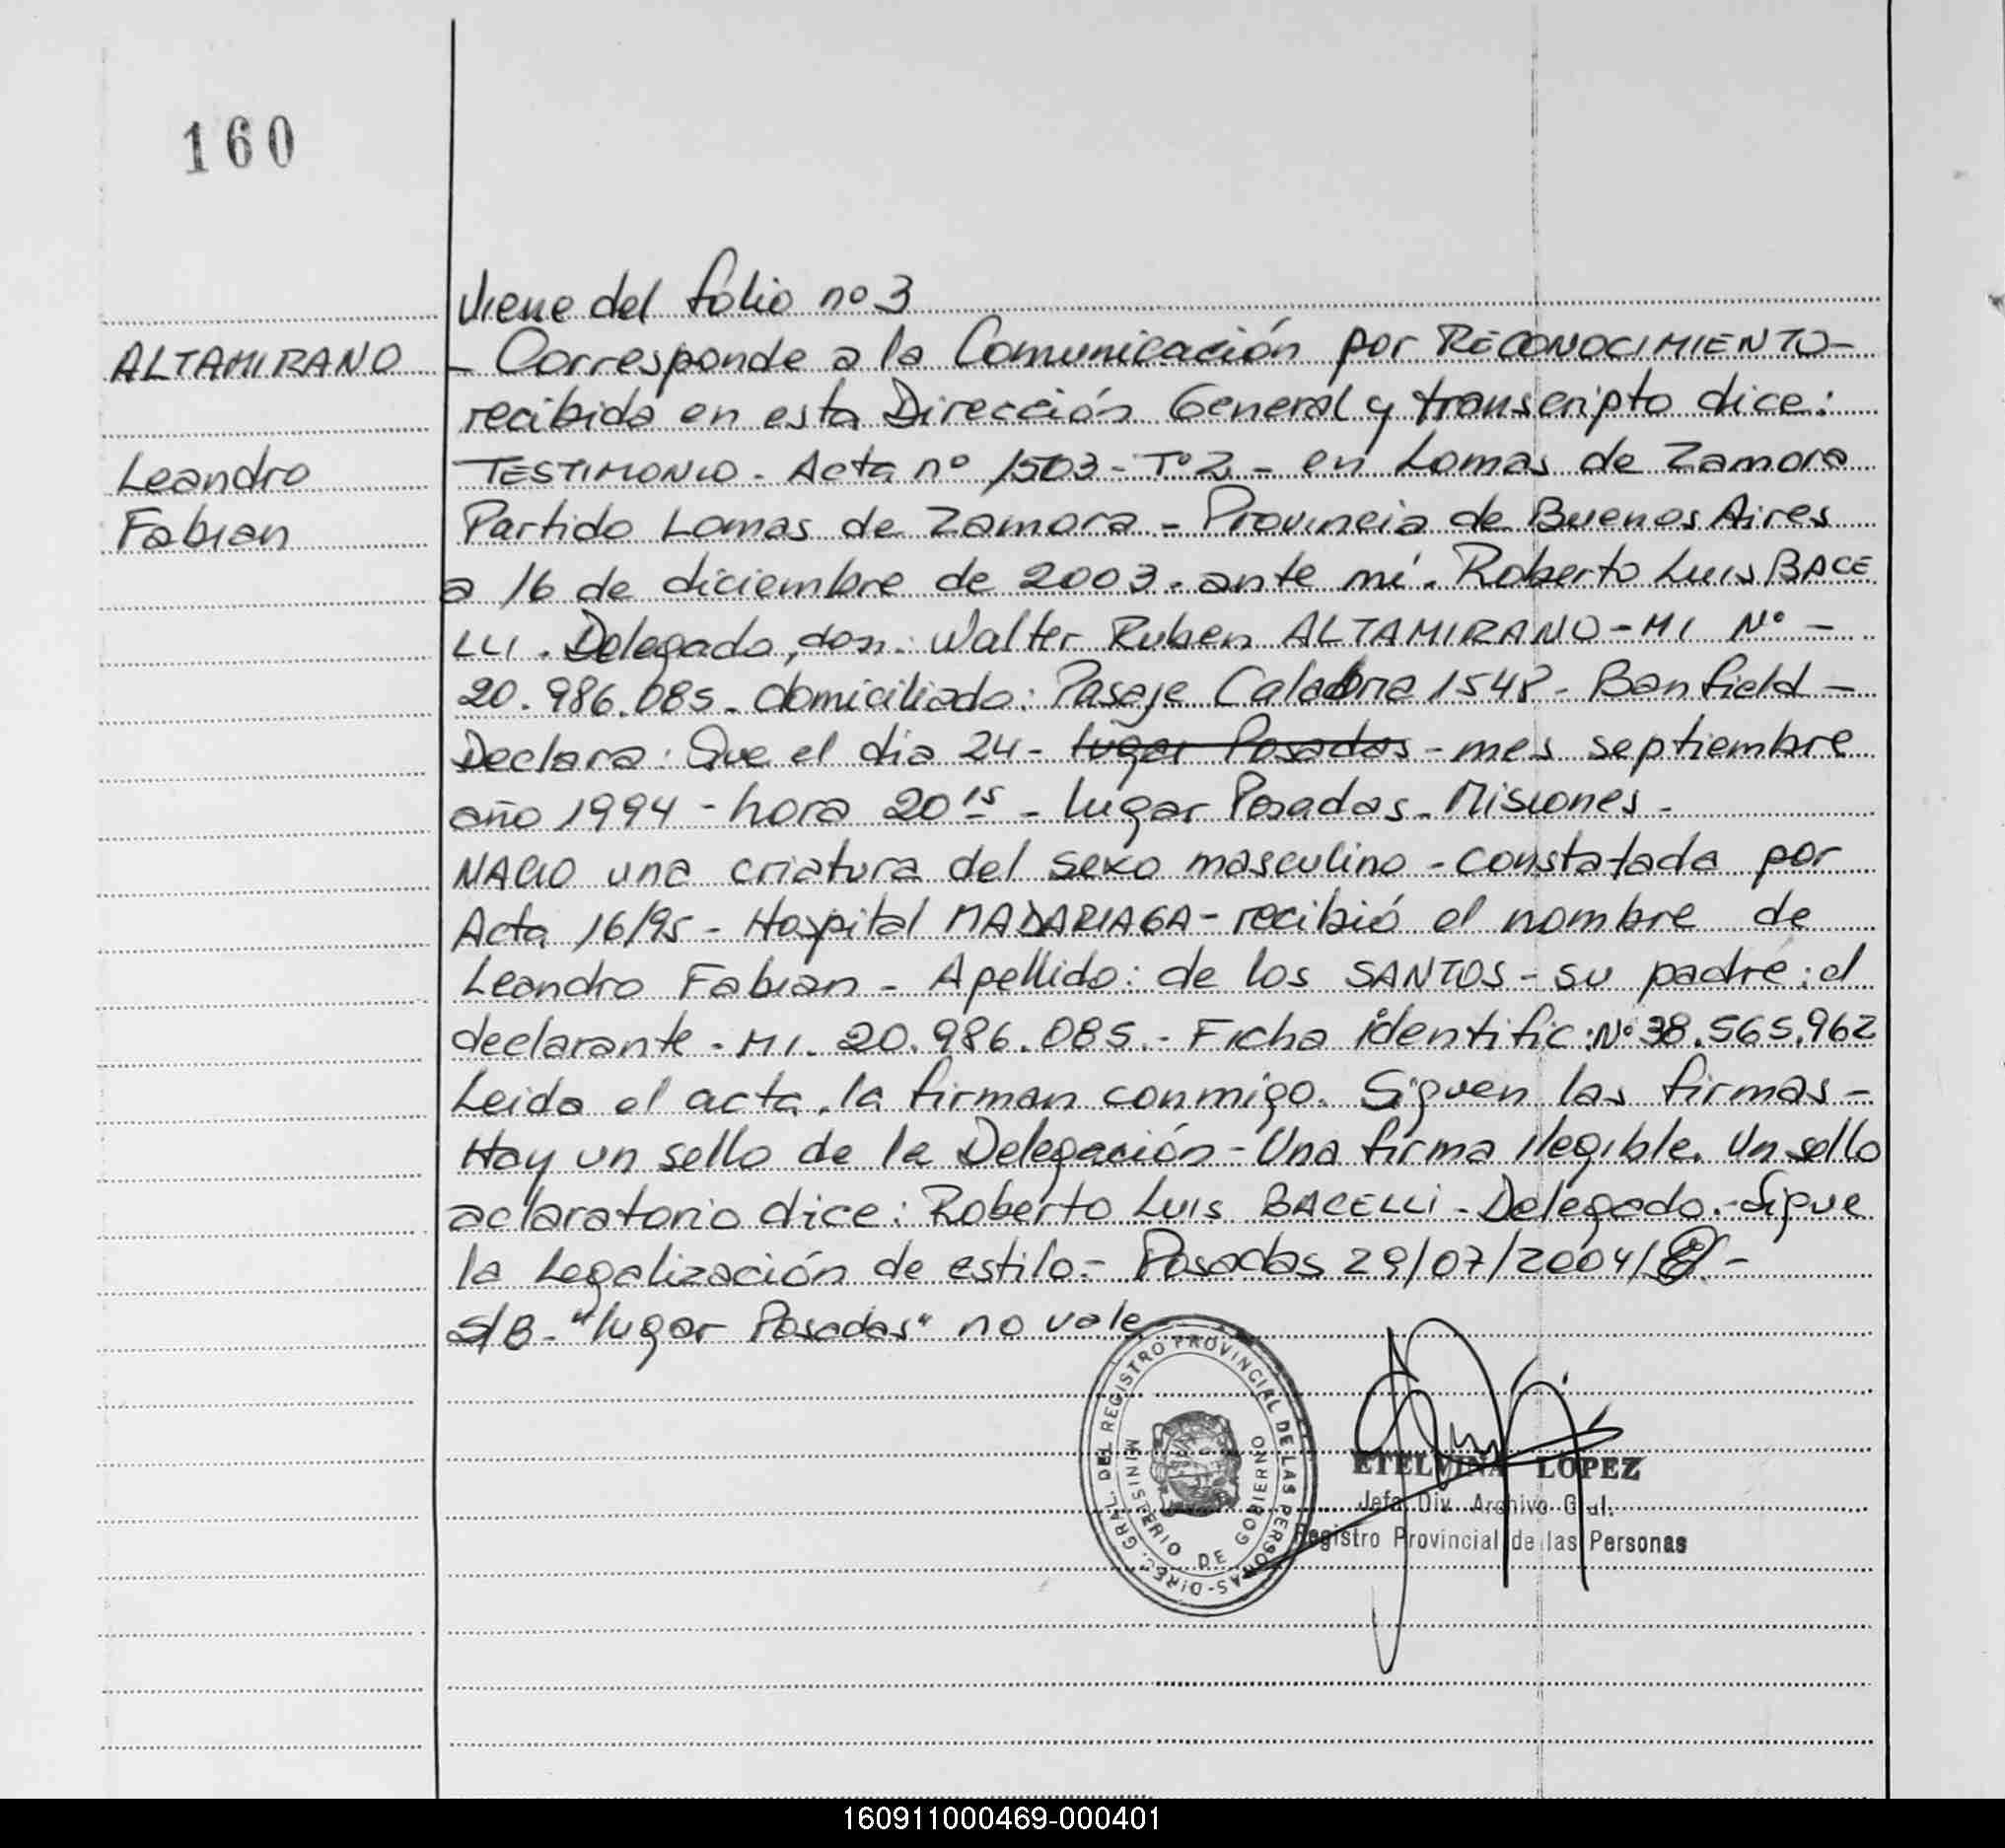 160
Viene del folio nº 3
ALTAMIRANO
- Corresponde a la Comunicación por RECONOCIMIENTO-
recibida en esta Dirección General y transcripto dice:
Leandro
TESTIMONIO - Acta nº 1503 - Tº 2 - en Lomas de Zamora
Fabian
Partido Lomas de Zamora - Provincia de Buenos Aires
a 16 de diciembre de 2003 - ante mí. Roberto Luis BACE
LLI. Delegado, don: Walter Ruben ALTAMIRANO - MI Nº -
20.986.085 - domiciliado: Pasaje Calabria 1548 - Banfield -
Declara: Que el dia 24 - lugar Posadas - mes septiembre
año 1994 - hora 20 15 - lugar Posadas - Misiones -
NACIO una criatura del sexo masculino - constatada por
Acta 16/95 - Hospital MADARIAGA - recibió el nombre de
Leandro Fabian - Apellido: de los SANTOS - su padre: el
declarante - MI. 20.986.085 - Ficha identific: Nº 38.565.962
Leida el acta, la firman conmigo. Siguen las firmas -
Hay un sello de la Delegación - Una firma ilegible. Un sello
aclaratorio dice: Roberto Luis BACELLI - Delegado.- Sigue
la Legalización de estilo.- Posadas 29/07/2004/
S/B - "lugar Posadas" no vale
DIREC. GRAL. DEL REGISTRO PROVINCIAL DE LAS PERSONAS -
MINISTERIO DE GOBIERNO
ETELVINA LOPEZ
Jefa Div. Archivo Gral.
Registro Provincial de las Personas
160911000469-000401